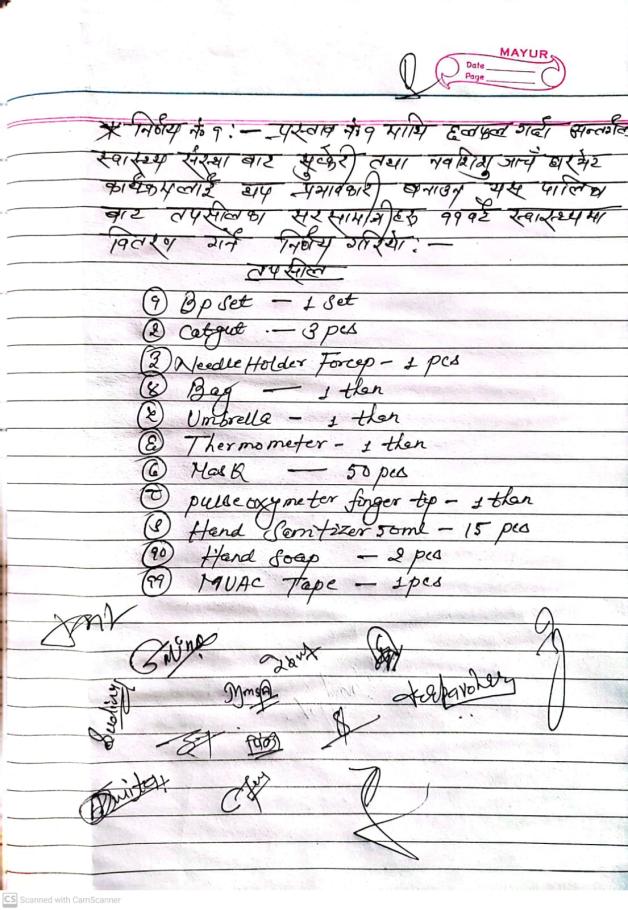 MAYUR
Date
Page
* निर्णय नं १ :- प्रस्ताव नं १ माथि छलफल गर्दा अन्तर्गत
स्वास्थ्य संस्था बाट सुत्केरी तथा नवशिशु जाँच घरभेट
कार्यक्रमलाई थप प्रभावकारी बनाउन यस पालिका
बाट तपसीलका सरसामाग्रीहरु ११वटै स्वास्थ्यमा
वितरण गर्ने निर्णय गरियो :-
तपसील
१ Bp set - 1 set
२ Catgut - 3 pcs
३ Needle Holder Forcep - 1 pcs
४ Bag - 1 than
५ Umbrella - 1 than
६ Thermometer - 1 than
७ Mask - 50 pcs
८ pulse oxymeter finger tip - 1 than
९ Hand Senitizer 50ml - 15 pcs
१० Hand Soap - 2 pcs
११ MUAC Tape - 1 pcs
CS Scanned with CamScanner